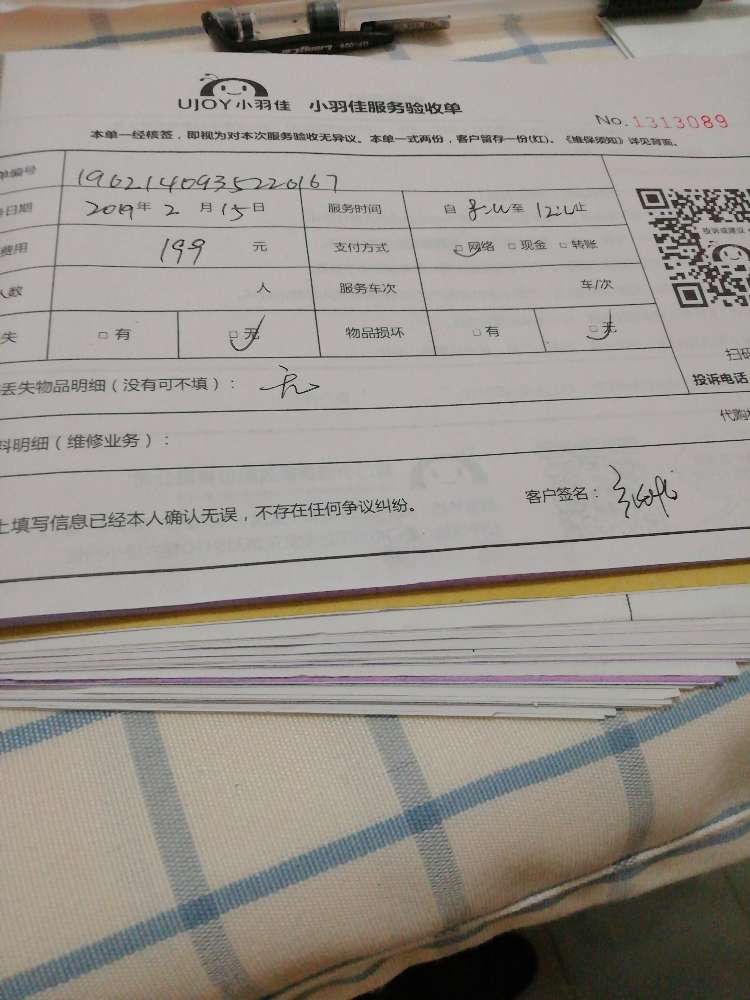 UJOY小羽佳 小羽佳服务验收单
No.1313089
本单一经核签，即视为对本次服务验收无异议。本单一式两份，客户留存一份(红)。《维保须知》详见背面。
单编号 19621409352220167
日期 2019年 2 月 15 日 服务时间 自 8:00 至 12:00 止
费用 199 元 支付方式 □网络 □现金 □转账
人数 人 服务车次 车/次
失 □有 □无 物品损坏 □有 □无
丢失物品明细（没有可不填）： 无
投诉电话
扫码
料明细（维修业务）：
代购
上填写信息已经本人确认无误，不存在任何争议纠纷。 客户签名：